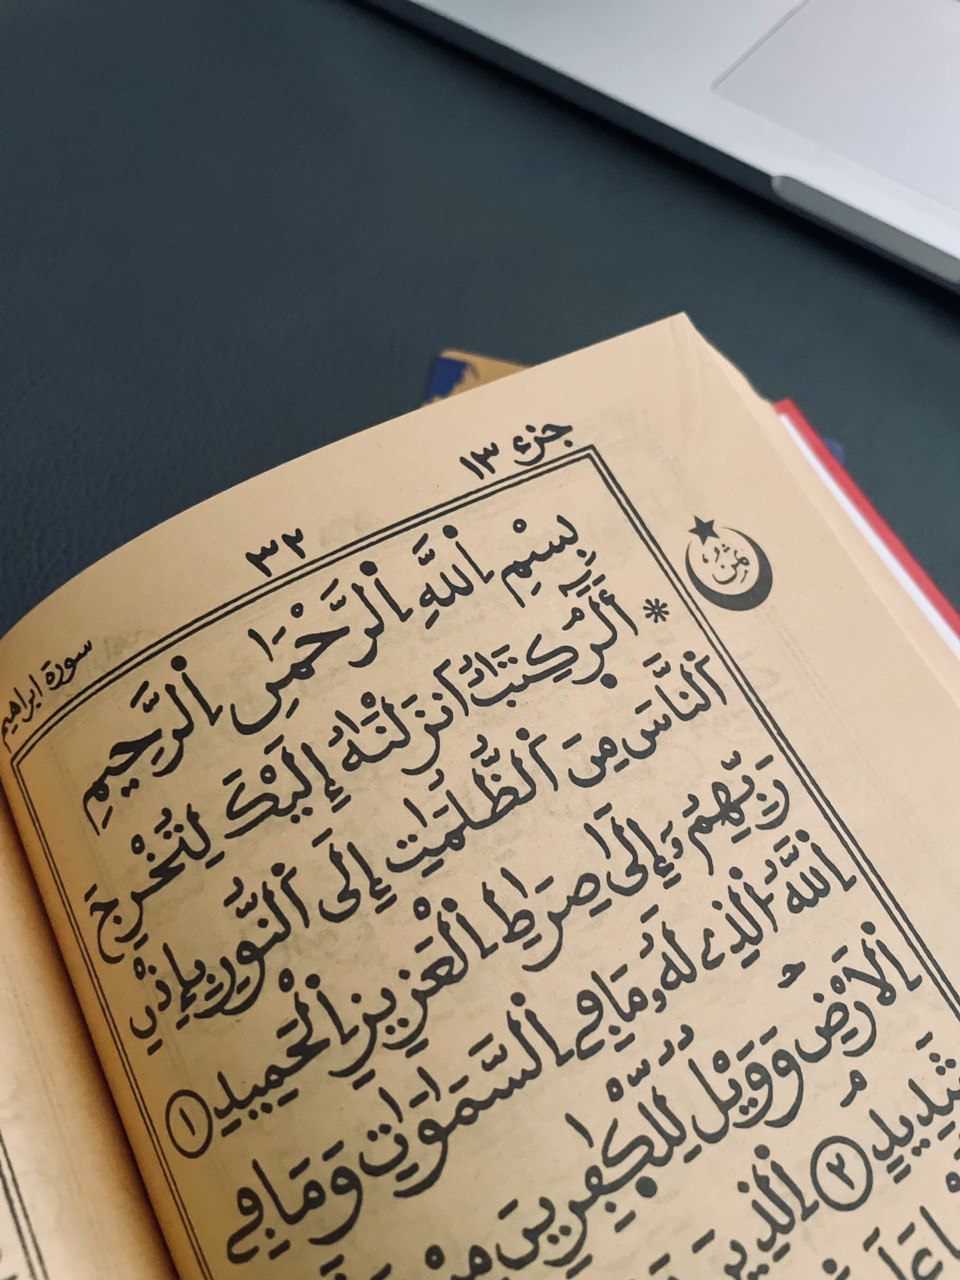 جزء ١٣
٣٢
سورة ابراهيم
ثمن
بِسْمِ اِ۬للَّهِ اِ۬لرَّحْمَٰنِ اِ۬لرَّحِيمِ
* أَلَٓر۪ كِتَٰبٌ اَنزَلْنَٰهُ إِلَيْكَ لِتُخْرِجَ
اَ۬لنَّاسَ مِنَ اَ۬لظُّلُمَٰتِ إِلَى اَ۬لنُّورِ بِإِذْنِ
رَبِّهِمُۥٓ إِلَىٰ صِرَٰطِ اِ۬لْعَزِيزِ اِ۬لْحَمِيدِ ١
اِ۬للَّهُ اُ۬لذِے لَهُۥ مَا فِے اِ۬لسَّمَٰوَٰتِ وَمَا فِے
اِ۬لَارْضِ وَوَيْلٌ لِّلْكٰ۪فِرِينَ مِنْ
شَدِيدٍ ٢ اِ۬لذِينَ